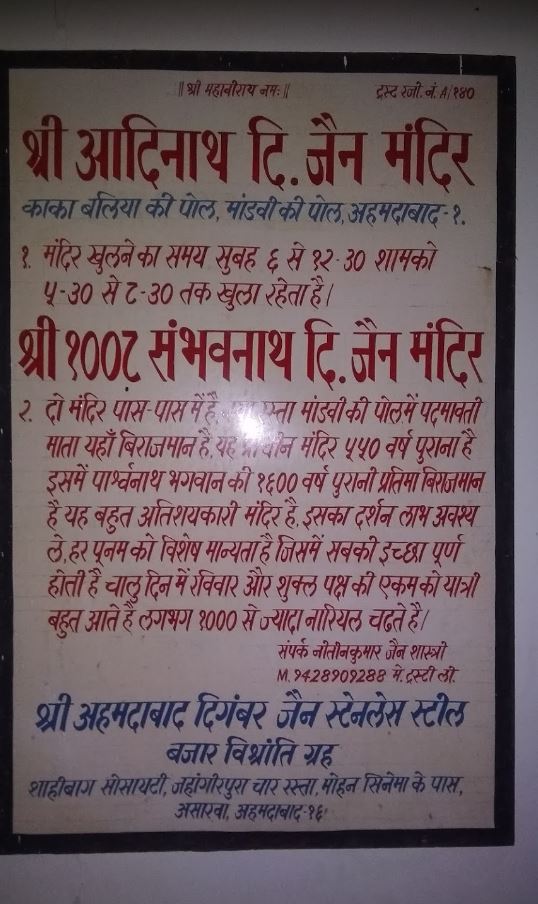 ॥ श्री महावीराय नमः ॥ ट्रस्ट रजी. नं. A/१४०
श्री आदिनाथ दि. जैन मंदिर
काका बलिया की पोल, मांडवी की पोल, अहमदाबाद-१.
१. मंदिर खुलने का समय सुबह ६ से १२-30 शामको
५-30 से ८-30 तक खुला रहेता है।
श्री १00८ संभवनाथ दि. जैन मंदिर
२. दो मंदिर पास-पास में है, रस्ता मांडवी की पोल में पदमावती
माता यहाँ बिराजमान है, यह प्राचीन मंदिर ५५0 वर्ष पुराना है
इसमें पार्श्वनाथ भगवान की १६00 वर्ष पुरानी प्रतिमा बिराजमान
है यह बहुत अतिशयकारी मंदिर है, इसका दर्शन लाभ अवश्य
ले, हर पूनम को विशेष मान्यता है जिसमें सबकी इच्छा पूर्ण
होती है चालु दिन में रविवार और शुक्ल पक्ष की एकम को यात्री
बहुत आते हैं लगभग १000 से ज्यादा नारियल चढते है।
संपर्क नीतीनकुमार जैन शास्त्री
M. 9428909288 मे. ट्रस्टी ली.
श्री अहमदाबाद दिगंबर जैन स्टेनलेस स्टील
बजार विश्रांति ग्रह
शाहीबाग सोसायटी, जहांगीरपुरा चार रस्ता, मोहन सिनेमा के पास,
असारवा, अहमदाबाद-१६